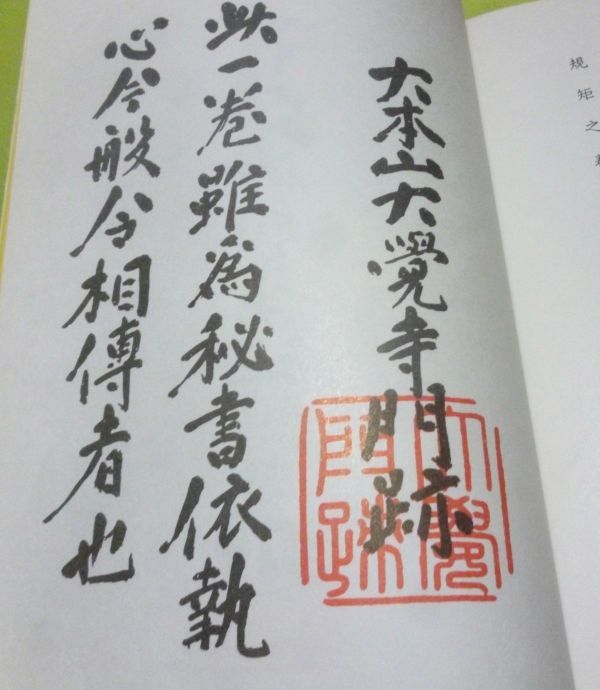 規矩之
大本山大覺寺門跡
此一卷雖為秘書依執
心今般令相傳者也
大覺門跡